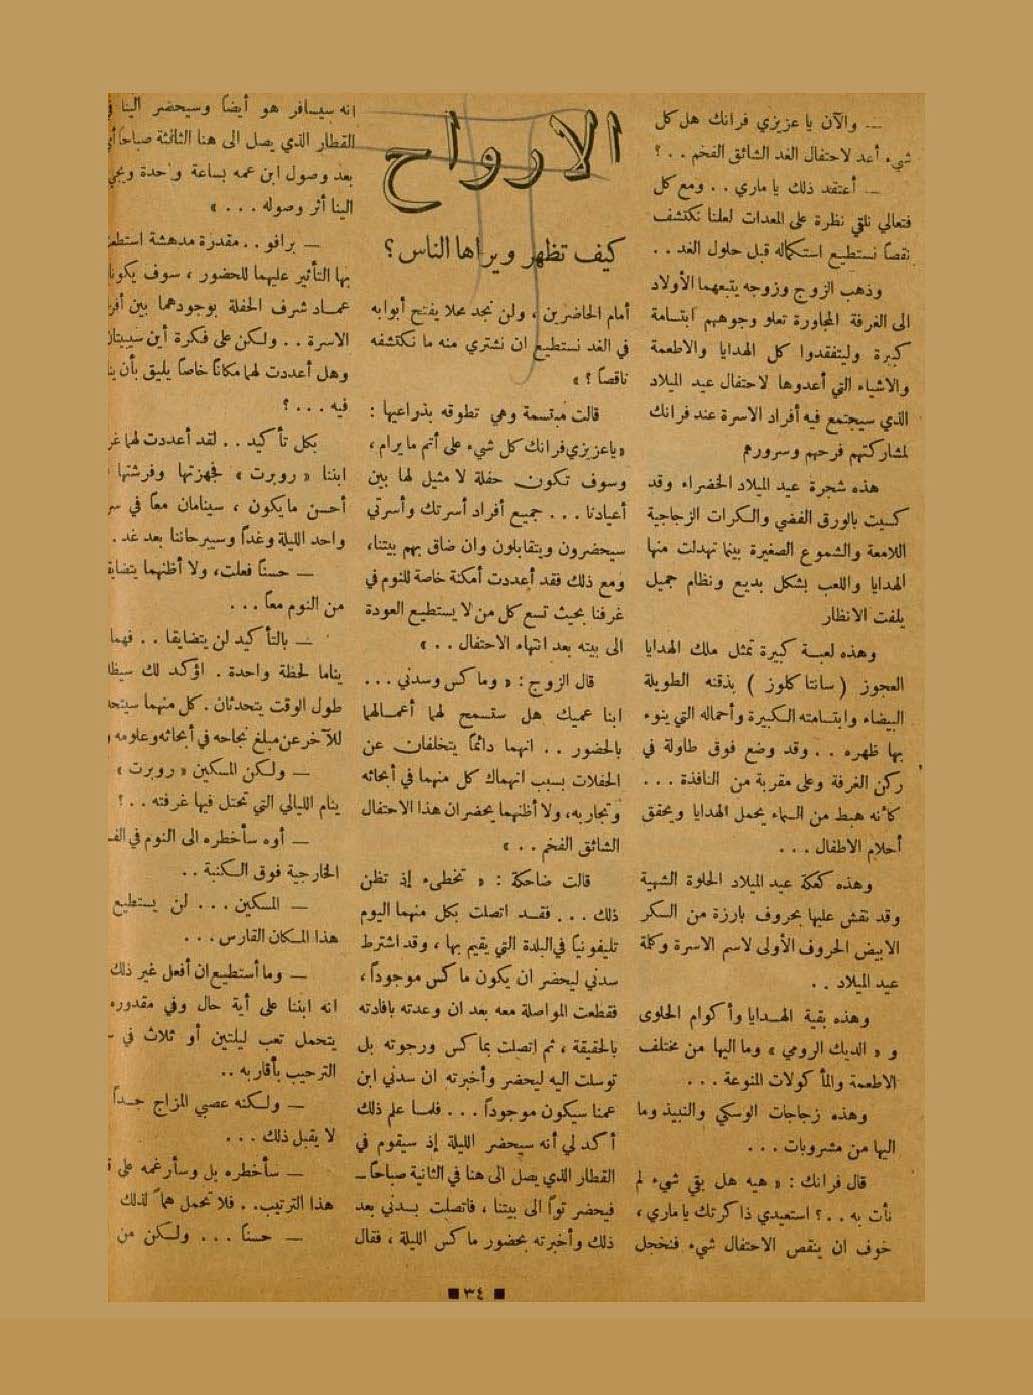 الارواح
كيف تظهر ويراها الناس ؟
— والآن يا عزيزي فرانك هل كل
شيء أعد لاحتفال الغد الشائق الفخم . . ؟
— أعتقد ذلك يا ماري . . ومع كل
فتعالي نلقي نظرة على المعدات لعلنا نكتشف
نقصاً نستطيع استكماله قبل حلول الغد . .
وذهب الزوج وزوجه يتبعهما الأولاد
الى الغرفة المجاورة تعلو وجوههم ابتسامة
كبيرة وليتفقدوا كل الهدايا والاطعمة
والاشياء التي أعدوها لاحتفال عيد الميلاد
الذي سيجتمع فيه أفراد الاسرة عند فرانك
لمشاركتهم فرحهم وسرورهم
هذه شجرة عيد الميلاد الخضراء وقد
كسيت بالورق الفضي والكرات الزجاجية
اللامعة والشموع الصغيرة بينما تهدلت منها
الهدايا واللعب بشكل بديع ونظام جميل
يلفت الانظار
وهذه لعبة كبيرة تمثل ملك الهدايا
العجوز ( سانتا كلوز ) بذقنه الطويلة
البيضاء وابتسامته الكبيرة وأحماله التي ينوء
بها ظهره . . وقد وضع فوق طاولة في
ركن الغرفة وعلى مقربة من النافذة . . .
كأنه هبط من السماء يحمل الهدايا ويحقق
أحلام الاطفال . . .
وهذه كعكة عيد الميلاد الحلوة الشهية
وقد نقش عليها بحروف بارزة من السكر
الابيض الحروف الأولى لاسم الاسرة وكلمة
عيد الميلاد . .
وهذه بقية الهدايا وأكوام الحلوى
و « الديك الرومي » وما اليها من مختلف
الاطعمة والمأكولات المنوعة . . .
وهذه زجاجات الوسكي والنبيذ وما
اليها من مشروبات . . .
قال فرانك : « هيه هل بقي شيء لم
نأت به . . ؟ استعيدي ذاكرتك ياماري ،
خوف ان ينقص الاحتفال شيء فنخجل
أمام الحاضرين ، ولن نجد محلا يفتح أبوابه
في الغد نستطيع ان نشتري منه ما نكتشفه
ناقصاً ؟ »
قالت مبتسمة وهي تطوقه بذراعيها :
« ياعزيزي فرانك كل شيء على أتم ما يرام ،
وسوف تكون حفلة لا مثيل لها بين
أعيادنا . . . جميع أفراد أسرتك وأسرتي
سيحضرون ويتقابلون وان ضاق بهم بيتنا،
ومع ذلك فقد أعددت أمكنة خاصة للنوم في
غرفنا بحيث تسع كل من لا يستطيع العودة
الى بيته بعد انتهاء الاحتفال . . »
قال الزوج : « وماكس وسدني . . .
ابنا عميك هل ستسمح لهما أعمالهما
بالحضور . . انهما دائماً يتخلفان عن
الحفلات بسبب انهماك كل منهما في أبحاثه
وتجاربه، ولا أظنهما يحضران هذا الاحتفال
الشائق الفخم . . »
قالت ضاحكة : « تخطىء إذ تظن
ذلك . . . فقد اتصلت بكل منهما اليوم
تليفونياً في البلدة التي يقيم بها ، وقد اشترط
سدني ليحضر ان يكون ماكس موجوداً ،
فقطعت المواصلة معه بعد ان وعدته بافادته
بالحقيقة ، ثم اتصلت بماكس ورجوته بل
توسلت اليه ليحضر وأخبرته ان سدني ابن
عمنا سيكون موجوداً . . . فلما علم ذلك
أكد لي أنه سيحضر الليلة إذ سيقوم في
القطار الذي يصل الى هنا في الثانية صباحاً —
فيحضر تواً الى بيتنا ، فاتصلت بسدني بعد
ذلك وأخبرته بحضور ماكس الليلة ، فقال
انه سيسافر هو أيضاً وسيحضر الينا
القطار الذي يصل الى هنا الثالثة صباحاً
بعد وصول ابن عمه بساعة واحدة
الينا أثر وصوله . . . »
— برافو . . مقدرة مدهشة
بها التأثير عليهما للحضور ، سوف
عماد شرف الحفلة بوجودهما بين
الاسرة . . ولكن على فكرة أين
وهل أعددت لهما مكاناً خاصاً يليق بأن
فيه . . . ؟
بكل تأكيد . . لقد أعددت لهما
ابننا « روبرت » فجهزتها وفرشتها
أحسن مايكون ، سينامان معاً في
واحد الليلة وغداً وسيبرحاننا بعد غد .
— حسناً فعلت، ولا أظنهما
من النوم معاً . . .
— بالتأكيد لن يتضايقا . . فهما
يناما لحظة واحدة . اؤكد لك
طول الوقت يتحدثان . كل منهما
للآخر عن مبلغ نجاحه في أبحاثه وعلومه
— ولكن المسكين « روبرت »
ينام الليالي التي تحتل فيها غرفته . . ؟
— أوه سأخطره الى النوم في
الخارجية فوق الكنبة . .
— المسكين . . . لن يستطيع
هذا المكان القارس . . .
— وما أستطيع ان أفعل غير ذلك
انه ابننا على أية حال وفي
يتحمل تعب ليلتين أو ثلاث في
الترحيب بأقاربه . .
— ولكنه عصبي المزاج جداً
لا يقبل ذلك . . .
— سأخطره بل وسأرغمه على
هذا الترتيب . . فلا تحمل هماً لذلك
— حسناً . . . ولكن من
■ ٣٤ ■